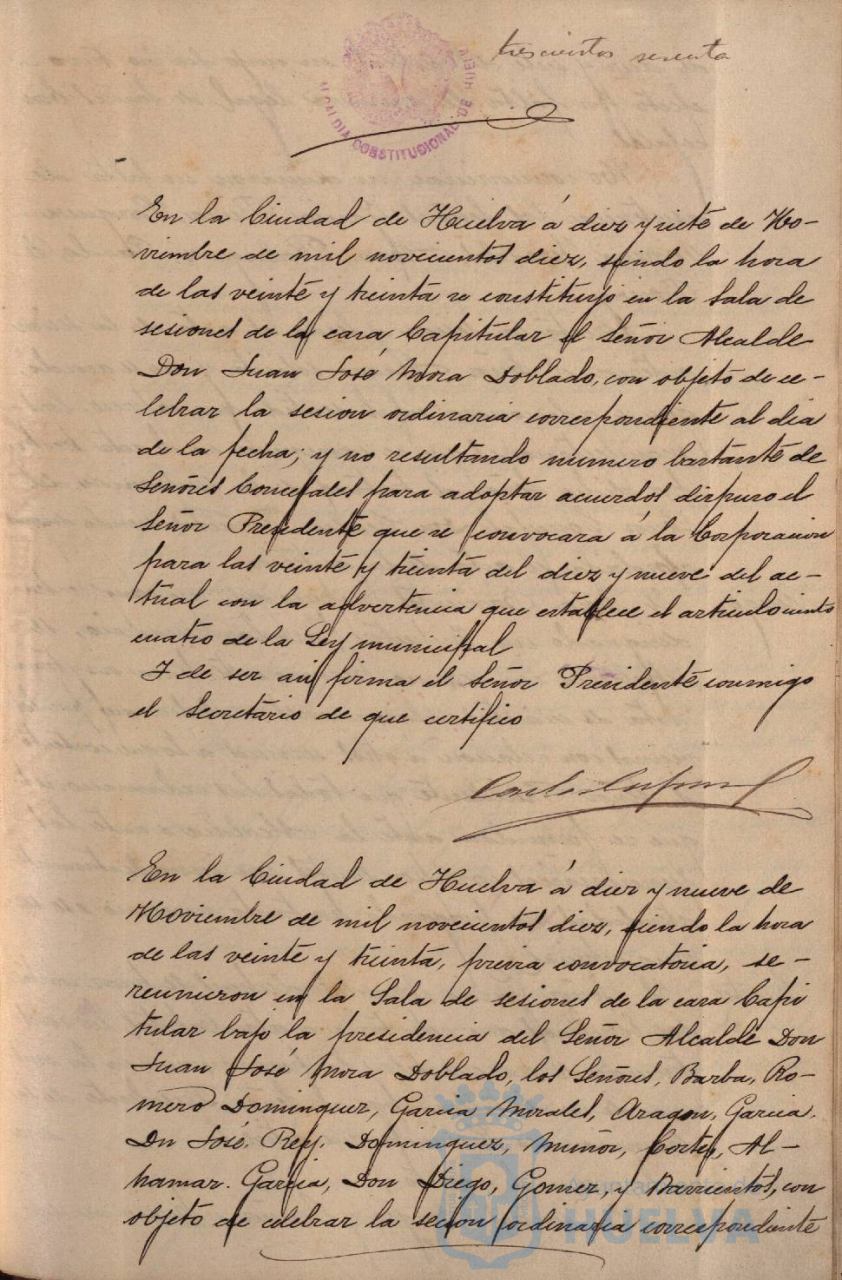 trescientos sesenta
ALCALDIA CONSTITUCIONAL DE HUELVA
En la Ciudad de Huelva á diez y siete de No-
viembre de mil novecientos diez, siendo la hora
de las veinte y treinta se constituyó en la Sala de
sesiones de la casa Capitular el Señor Alcalde
Don Juan José Mora Doblado, con objeto de ce-
lebrar la sesion ordinaria correspondiente al dia
de la fecha; y no resultando numero bastante de
Señores Concejales para adoptar acuerdos dispuso el
Señor Presidente que se convocara á la Corporacion
para las veinte y treinta del diez y nueve del ac-
tual con la advertencia que establece el articulo ciento
cuatro de la Ley municipal
Y de ser asi firma el Señor Presidente conmigo
el Secretario de que certifico
En la Ciudad de Huelva á diez y nueve de
Noviembre de mil novecientos diez, siendo la hora
de las veinte y treinta, previa convocatoria, se-
reunieron en la Sala de sesiones de la casa Capi
tular bajo la presidencia del Señor Alcalde Don
Juan José Mora Doblado, los Señores, Barba, Ro-
mero Dominguez, Garcia Morales, Aragon, Garcia.
Dn José. Rey. Dominguez, Muñoz, Cortes, Al-
hamar. Garcia, Don Diego, Gomez, y Barrientos, con
objeto de celebrar la sesion ordinaria correspondiente
HUELVA